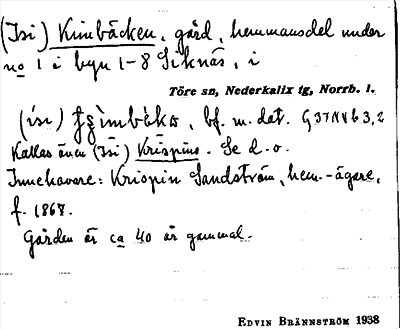 (Isi) Kimbäcken, gård, hemmansdel under
no 1 i byn 1-8 Siknäs, i
Töre sn, Nederkalix tg, Norrb. l.
(ísi) bf. m. dat. G 37 N V b 3, 2
Kallas även (Isi) Krispins. Se d. o.
Innehavare: Krispin Sandström, hem.-ägare,
f. 1867.
Gården är ca 40 år gammal.
EDVIN BRÄNNSTRÖM 1938